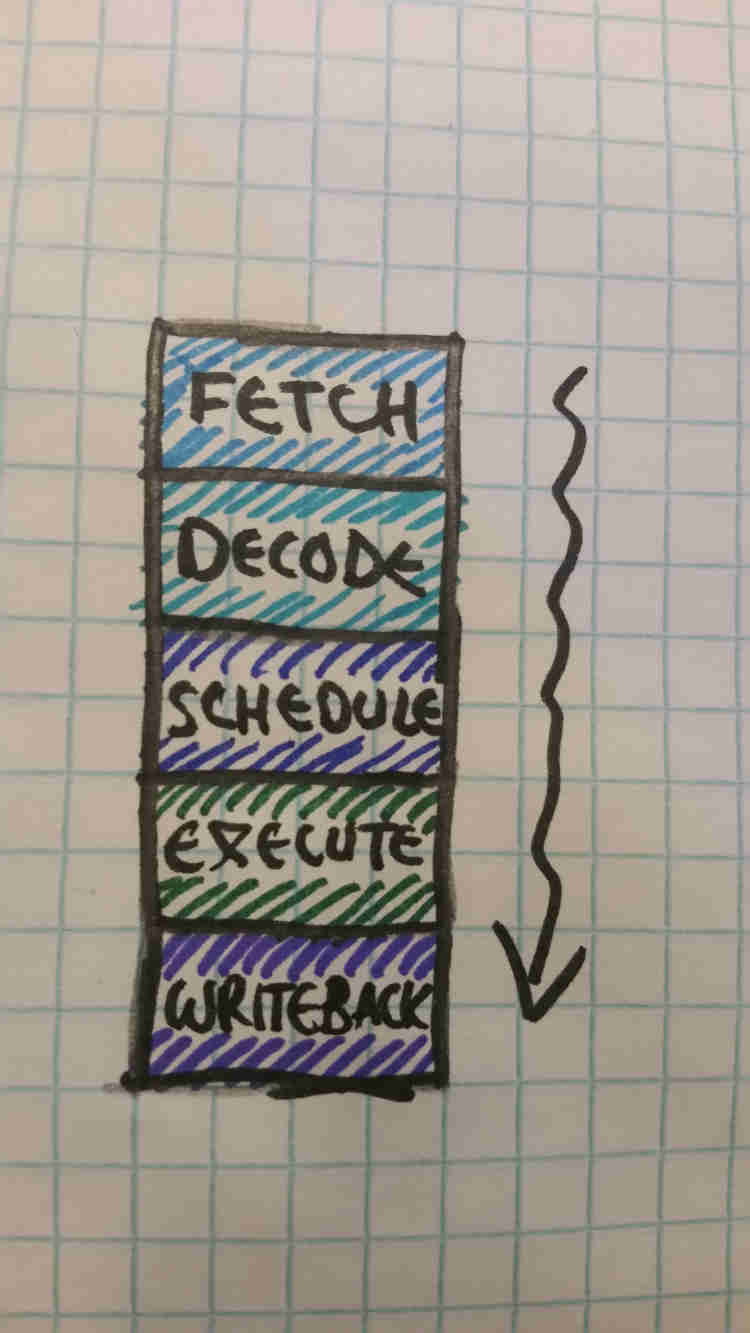 FETCH
DECODE
SCHEDULE
EXECUTE
WRITEBACK